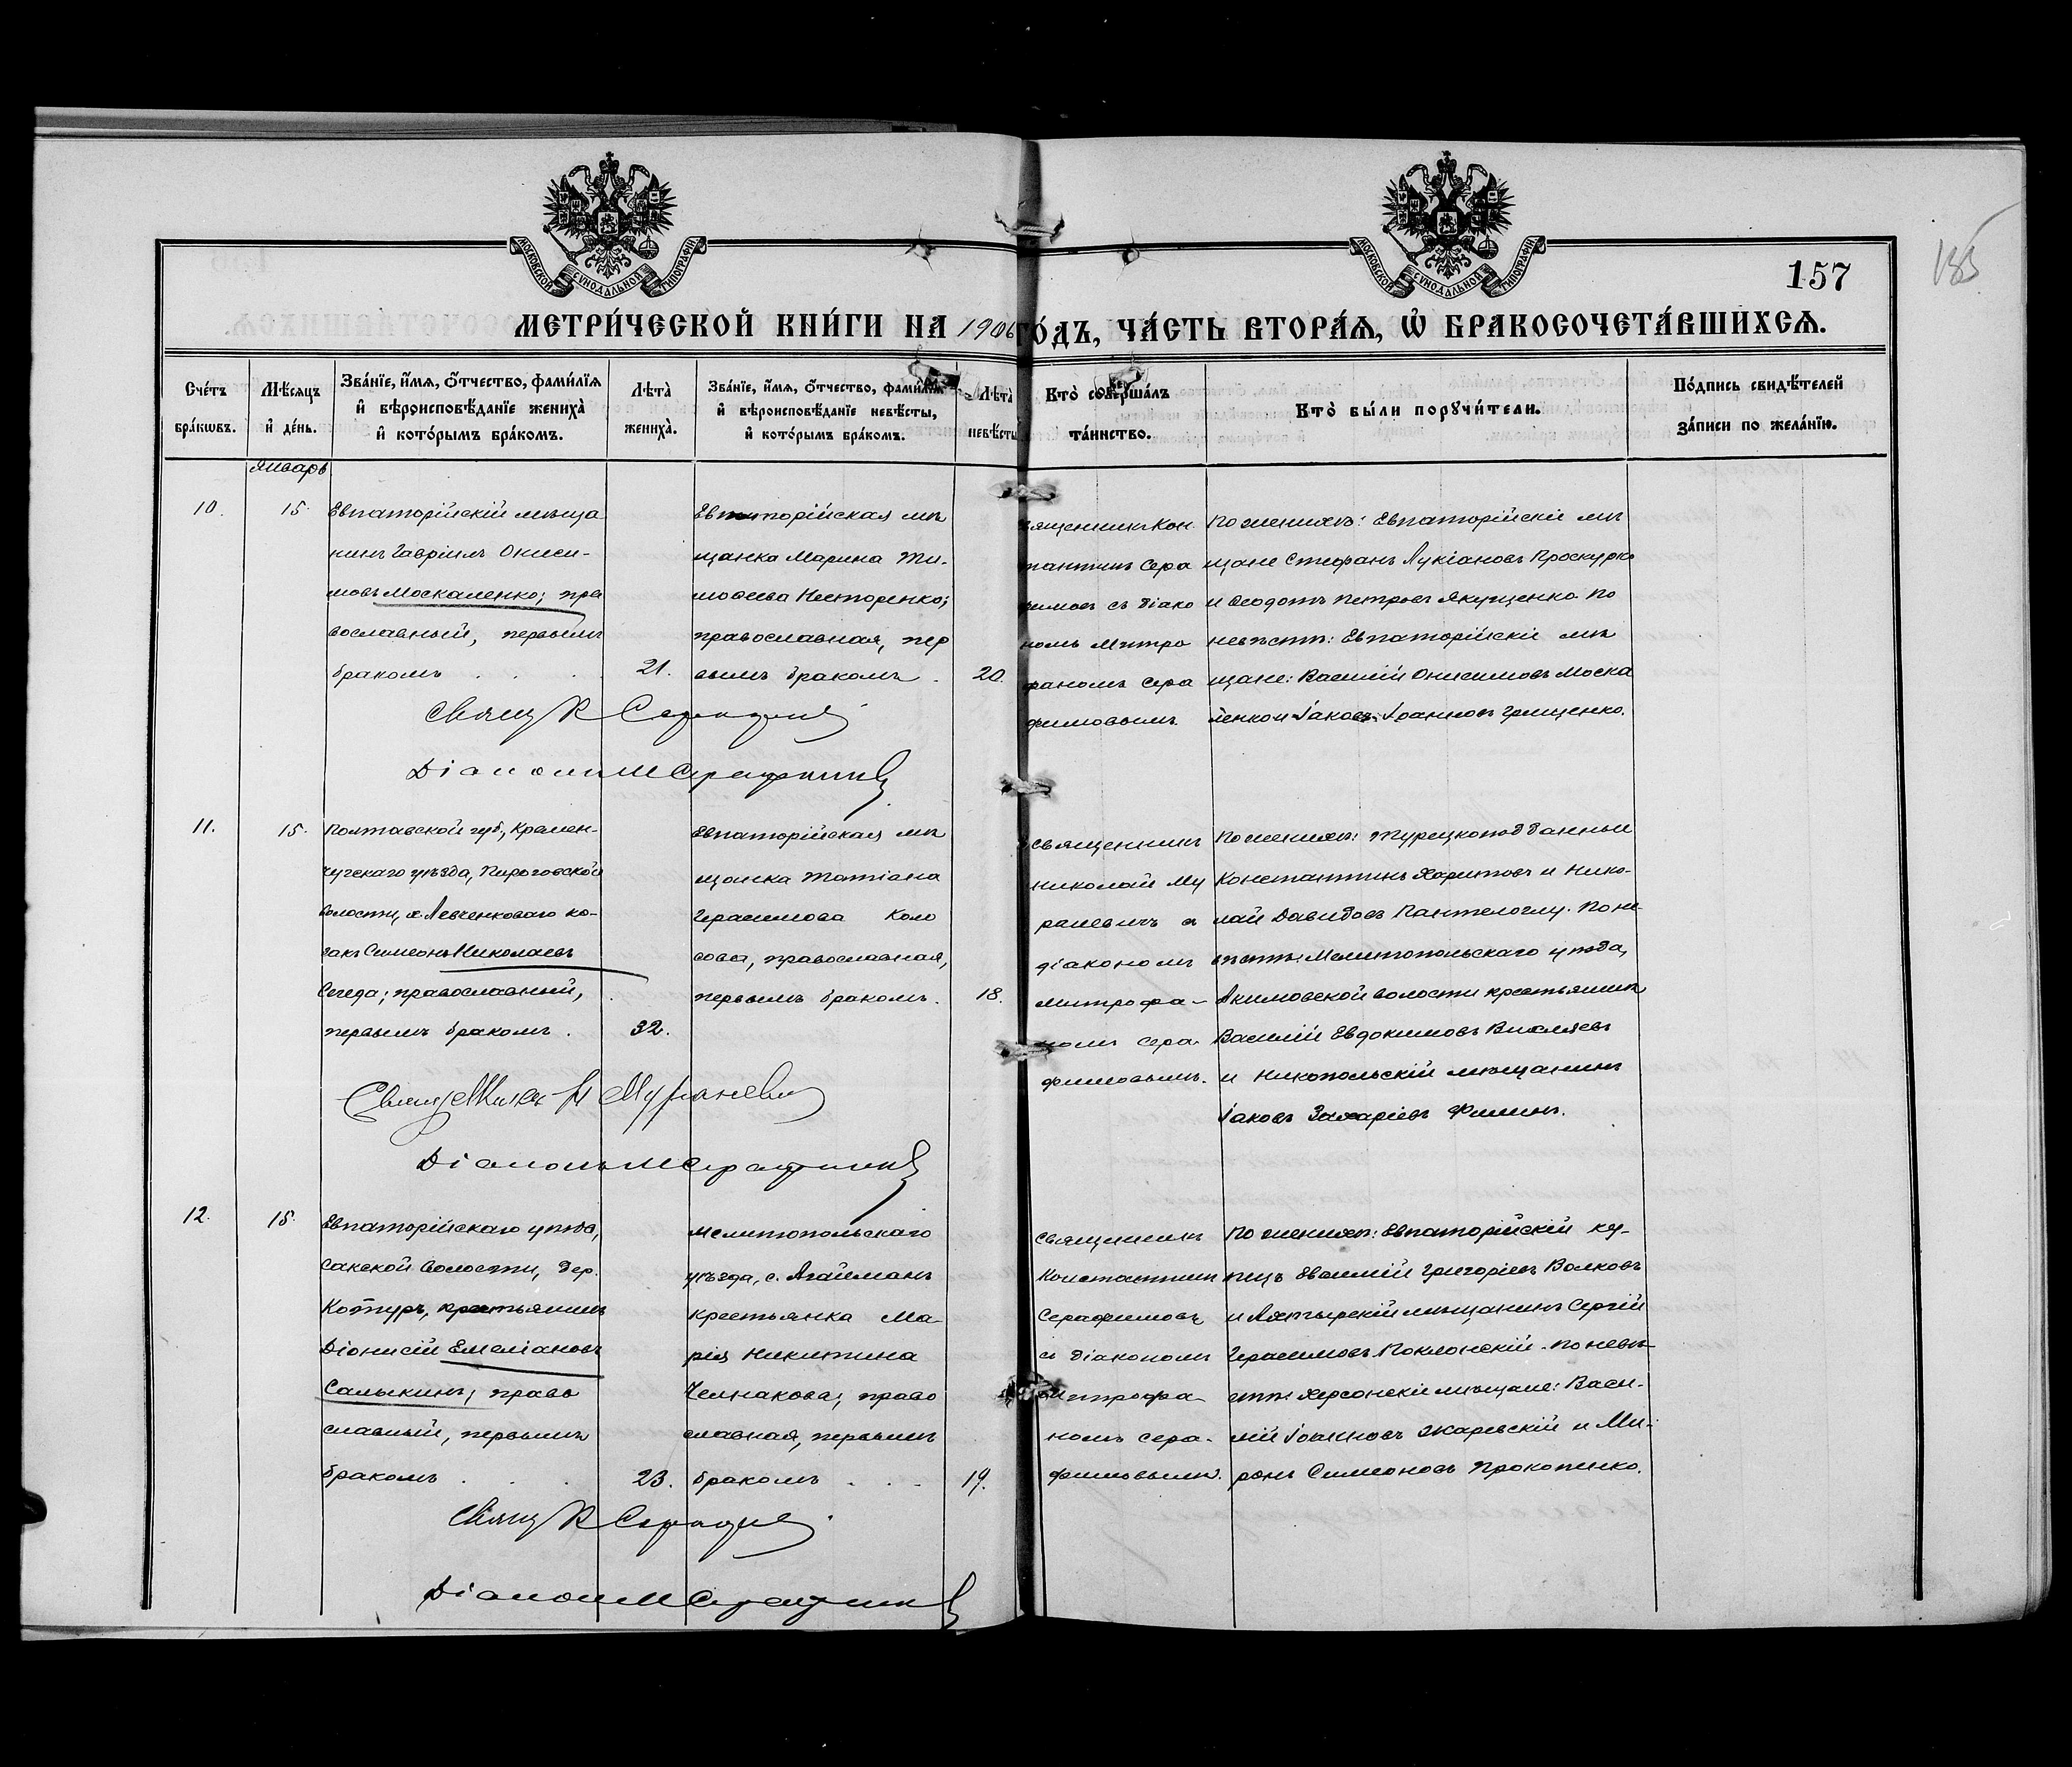 МОСКОВСКОЙ СѴНОДАЛЬНОЙ ТИПОГРАФІИ
МОСКОВСКОЙ СѴНОДАЛЬНОЙ ТИПОГРАФІИ
157
185
МЕТРИ́ЧЕСКОЙ КНИ́ГИ НА 1906 ГО́ДЪ, ЧА́СТЬ ВТОРА́Ѧ, Ѡ БРАКОСОЧЕТА́ВШИХСѦ.
Сче́тъ бра́кѡвъ.
Мѣ́сѧцъ и҆ де́нь.
Зва́нїе, и҆́мѧ, ѻ҆́тчество, фами́лїѧ
и҆ вѣроисповѣ́данїе жениха̀
и҆ кото́рымъ бра́комъ.
Лѣта̀ жениха̀.
Зва́нїе, и҆́мѧ, ѻ҆́тчество, фами́лїѧ
и҆ вѣроисповѣ́данїе невѣ́сты,
и҆ кото́рымъ бра́комъ.
Лѣта̀ невѣ́сты
Кто̀ соверша́лъ та́инство.
Кто̀ бы́ли порꙋчи́тели.
По́дпись свидѣ́телей
за́писи по жела́нїю.
Январь
10.
15.
Евпаторійскій мѣща
нинъ Гавріилъ Ониси-
мовъ Москаленко; пра
вославный, первымъ
бракомъ . . .
21.
Евпаторійская мѣ
щанка Марина Ти-
моѳеева Несторенко;
православная, пер
вымъ бракомъ .
20.
священникъ Кон
стантинъ Сера
фимовъ съ діако
номъ Митро
фаномъ Сера
фимовымъ
По женихѣ: Евпаторійскіе мѣ
щане Стефанъ Лукіановъ Проскурко
и Ѳеодотъ Петровъ Якущенко. По
невѣстѣ: Евпаторійскіе мѣ
щане: Василій Онисимовъ Моска
ленко и Іаковъ Іоанновъ Грищенко.
Свящ К Серафимов
Діаконъ М Серафимов
11.
15.
Полтавской губ., Кремен-
чугскаго уѣзда, Пироговской
волости, х. Левченковаго ко-
закъ Симеонъ Николаевъ
Сегеда; православный,
первымъ бракомъ .
32.
Евпаторійская мѣ
щанка Татіана
Герасимова Коло
сова, православная,
первымъ бракомъ.
18.
священникъ
Николай Му
раневичъ с
діакономъ
Митрофа-
номъ Сера-
фимовымъ.
По женихѣ: Турецкоподданные
Константинъ Харитовъ и Нико-
лай Давидовъ Пантелоглу. По не-
вѣстѣ: Мелитопольскаго уѣзда,
Акимовской волости крестьянинъ
Василій Евдокимовъ
и Никопольскій мѣщанинъ
Іаковъ Захаріевъ Филинъ.
Священникъ Н Мураневич
Діаконъ М Серафимов
12.
15.
Евпаторійскаго уѣзда,
Сакской волости, дер.
Контуръ, крестьянинъ
Діонисій Емеліановъ
Салыкинъ; право
славный, первымъ
бракомъ . . .
23.
Мелитопольскаго
уѣзда, с. Агайманъ
крестьянка Ма-
рія Никитина
Челнакова; право
славная, первымъ
бракомъ . . .
19.
священникъ
Константинъ
Серафимовъ
с діакономъ
Митрофа-
номъ Сера-
фимовымъ.
По женихѣ: Евпаторійскій ку-
пецъ Василій Григоріевъ Волковъ
и Ахтырскій мѣщанинъ Сергій
Герасимовъ Поклонскій. По невѣ-
стѣ: Херсонскіе мѣщане: Васи-
лій Іоанновъ Жаревскій и Ми-
ронъ Симеоновъ Прокопенко.
Свящ К Серафимов
Діаконъ М Серафимов